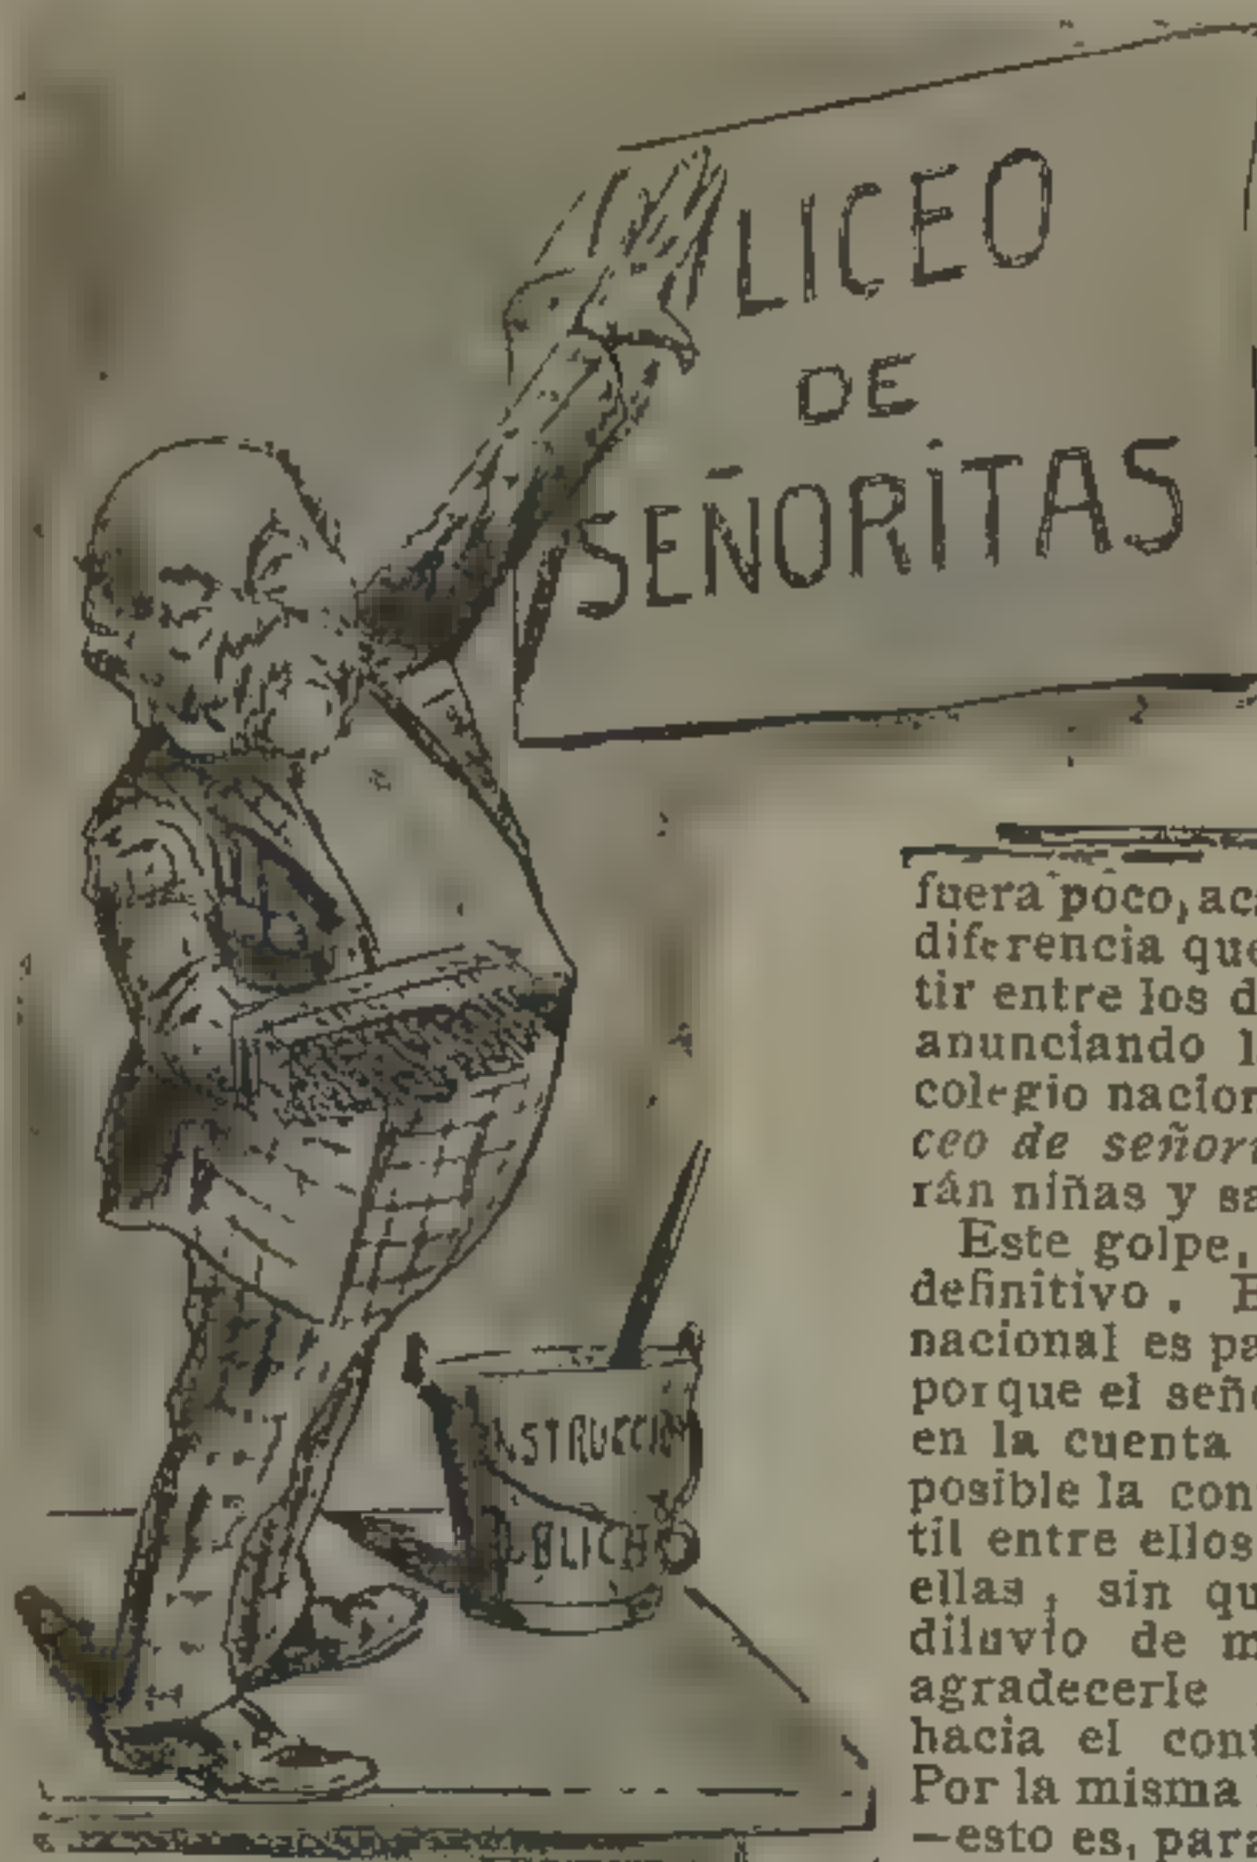 LICEO
DE
SEÑORITAS
INSTRUCCION
PUBLICA
fuera poco, aca
diferencia que
tir entre los d
anunciando l
colegio nacion
ceo de señori
rán niñas y sa
Este golpe,
definitivo. E
nacional es pa
porque el seño
en la cuenta
posible la con
til entre ellos
ellas, sin qu
diluvio de m
agradecerle
hacia el cont
Por la misma
—esto es, para